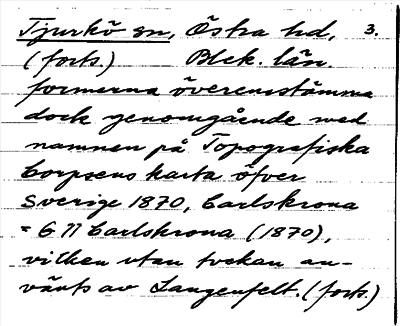 Tjurkö sn, Östra hd, 3.
(forts.) Blek. län.
formerna överensstämma
dock genomgående med
namnen på Topografiska
Corpsens karta öfver
Sverige 1870, Carlskrona
= G II Carlskrona (1870),
vilken utan tvekan an-
vänts av Langenfelt. (forts.)